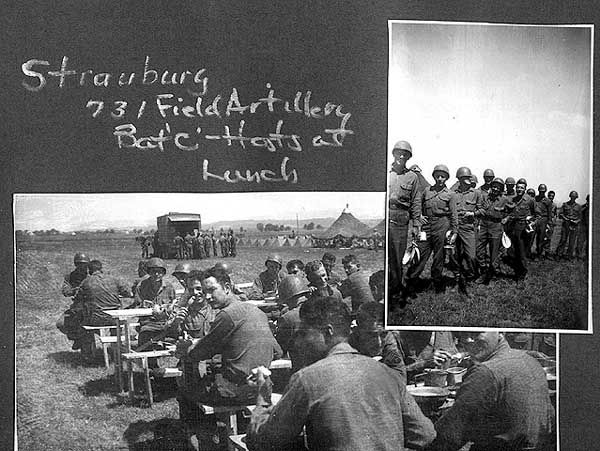 Strauburg
731 Field Artillery
Bat 'C' - Hosts at
Lunch